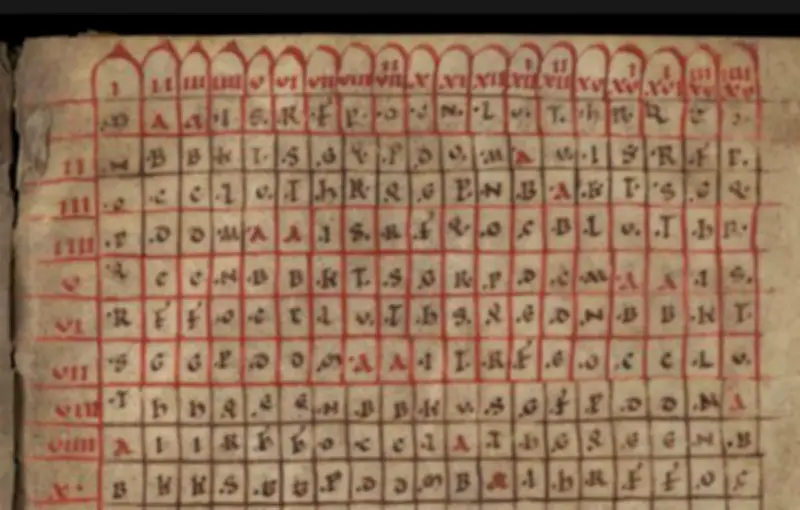 I II III IIII V VI VII VIII VIIII X XI XII XIII XIIII XV XVI XVII XVIII XVIIII
A A I S R F P O C N L V T h R
II N B B K T S G Q P D V M A V I S R F P
III O C C L V T h R Q G P N B A K T S G Q
IIII P D D M A A I S R F Q O C B L V T h R
V Q C C N B B K T S G R P D C M A A I S
VI R F F O C C L V T h S Q G D N B B K T
VII S G G P D D M A A I T R F G O C C L V
VIII T h h Q N B B K V S G F P D D M A
VIIII A I I R h h O C C L A T h G Q G G N B
X B K K S P D D M B I h R F F O C